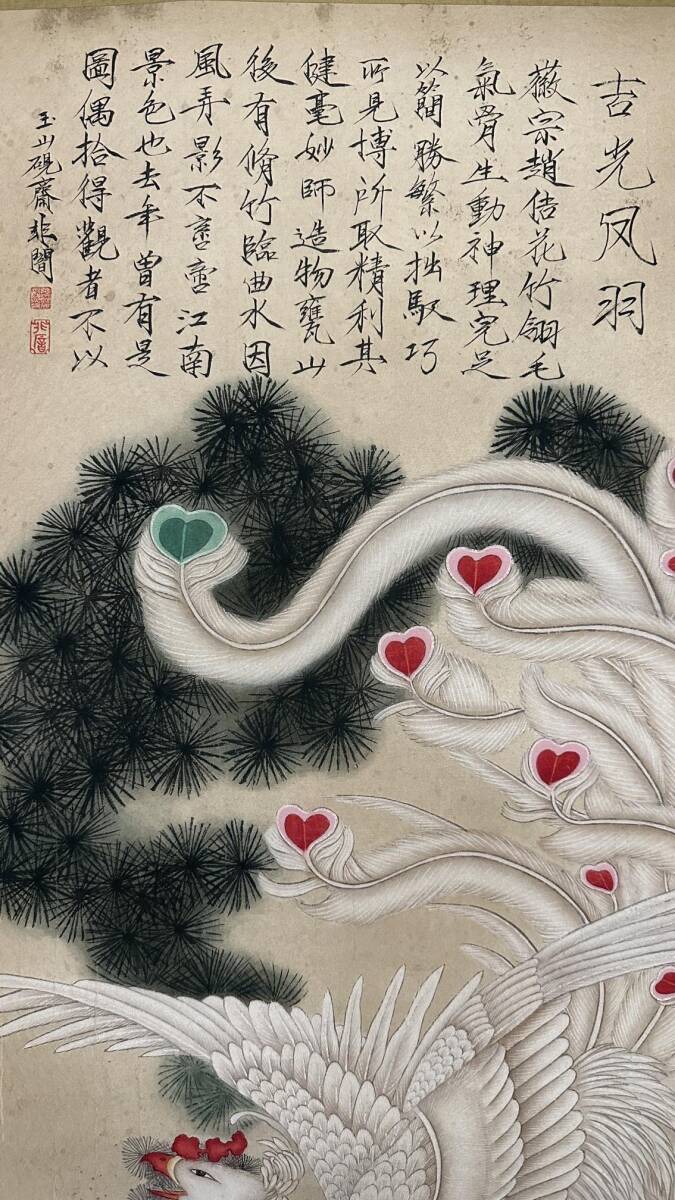 吉光凤羽
徽宗趙佶花竹翎毛
氣骨生動神理完足
以簡勝繁以拙馭巧
所見博所取精利其
健毫妙師造物甕山
後有脩竹臨曲水因
風弄影不啻江南
景色也去年曾有是
圖偶拾得觀者不以
玉山硯齋非闇
非闇